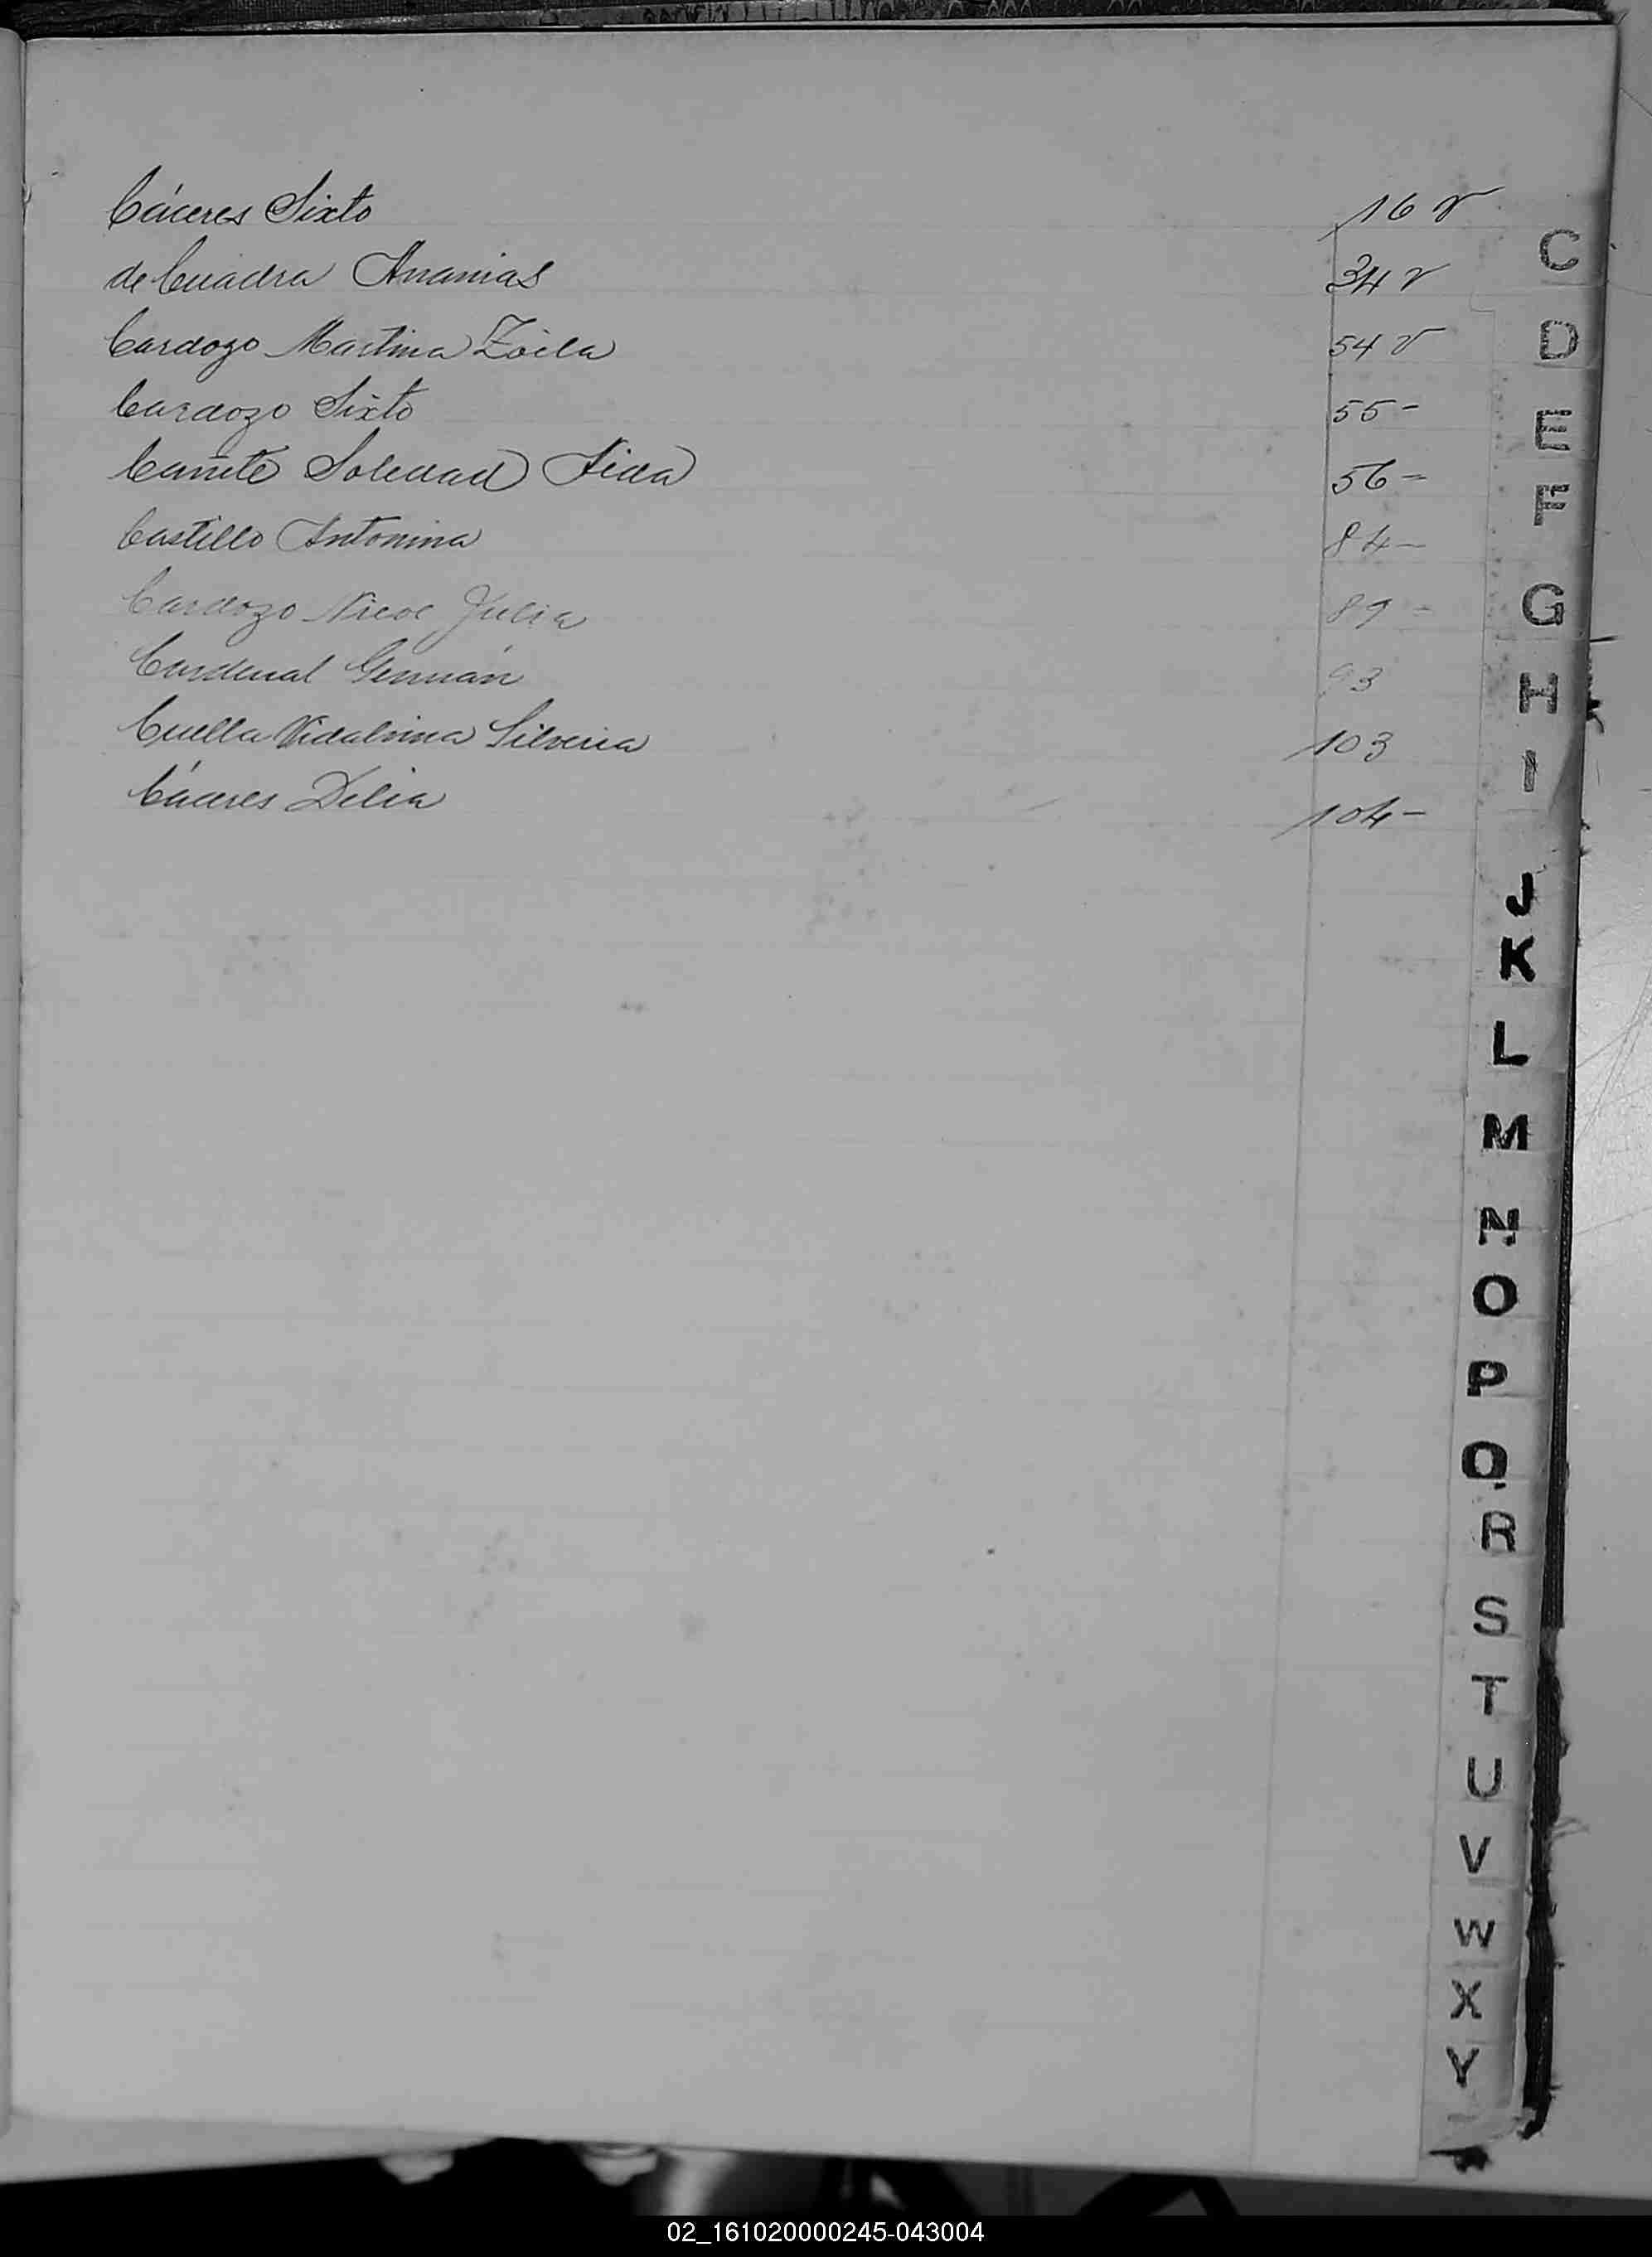 Cáceres Sixto 16 v
de Cuadra Ananias 34 v
Cardozo Martina Zoila 54 v
Cardozo Sixto 55 -
Cañete Soledad Fida 56 -
Castillo Antonina 84 -
Cardozo Julia 89 -
Cardenal Germán 93
Cuella Vidalvina Silveria 103
Cáceres Delia 104 -
C
D
E
F
G
H
I
J
K
L
M
N
O
P
Q
R
S
T
U
V
W
X
Y
02_161020000245-043004